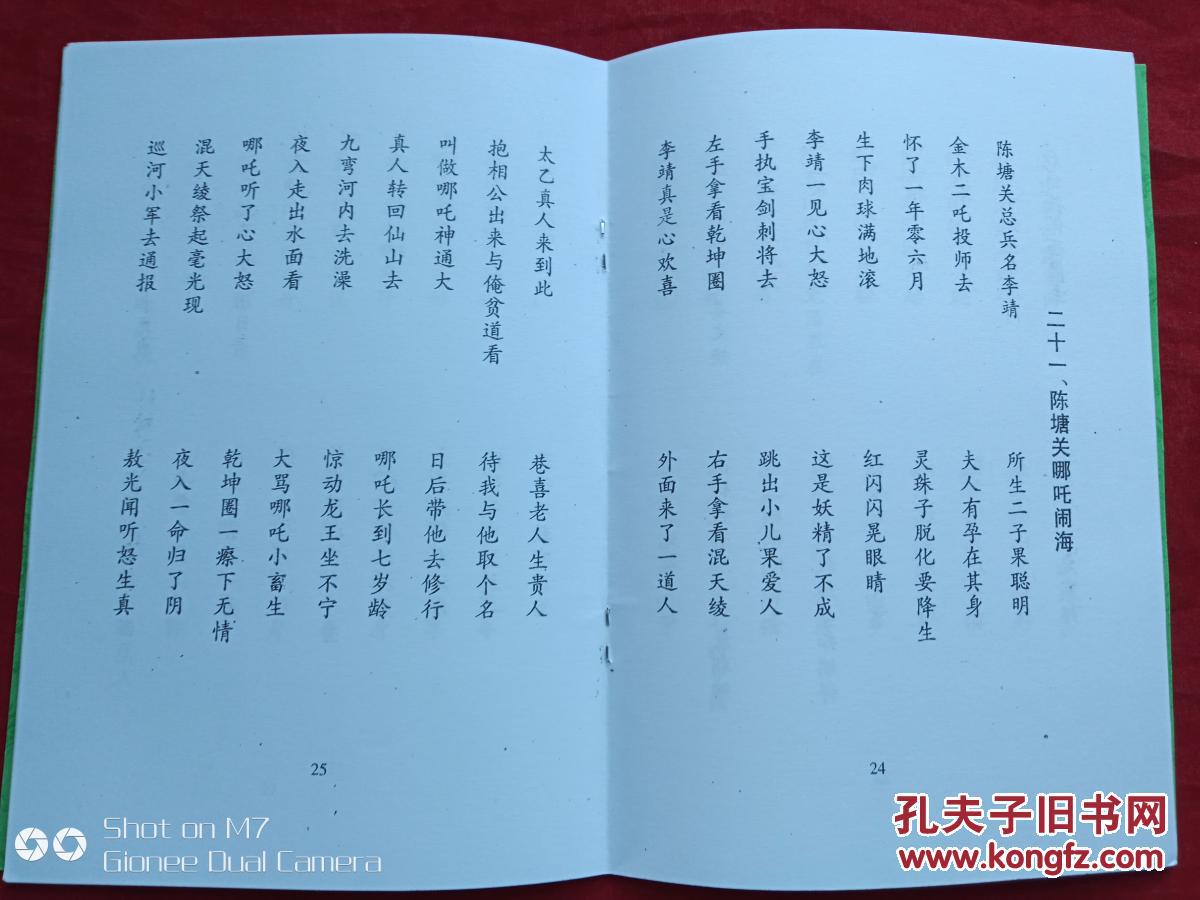 二十一、陈塘关哪吒闹海
陈塘关总兵名李靖
所生二子果聪明
金木二吒投师去
夫人有孕在其身
怀了一年零六月
灵珠子脱化要降生
生下肉球满地滚
红闪闪晃眼睛
李靖一见心大怒
这是妖精了不成
手执宝剑刺将去
跳出小儿果爱人
左手拿看乾坤圈
右手拿看混天绫
李靖真是心欢喜
外面来了一道人
24
太乙真人来到此
巷喜老人生贵人
抱相公出来与俺贫道看
待我与他取个名
叫做哪吒神通大
日后带他去修行
真人转回仙山去
哪吒长到七岁龄
九弯河内去洗澡
惊动龙王坐不宁
夜入走出水面看
大骂哪吒小畜生
哪吒听了心大怒
乾坤圈一瘵下无情
混天绫祭起毫光现
夜入一命归了阴
巡河小军去通报
敖光闻听怒生真
25
Shot on M7
Gionee Dual Camera
孔夫子旧书网
www.kongfz.com